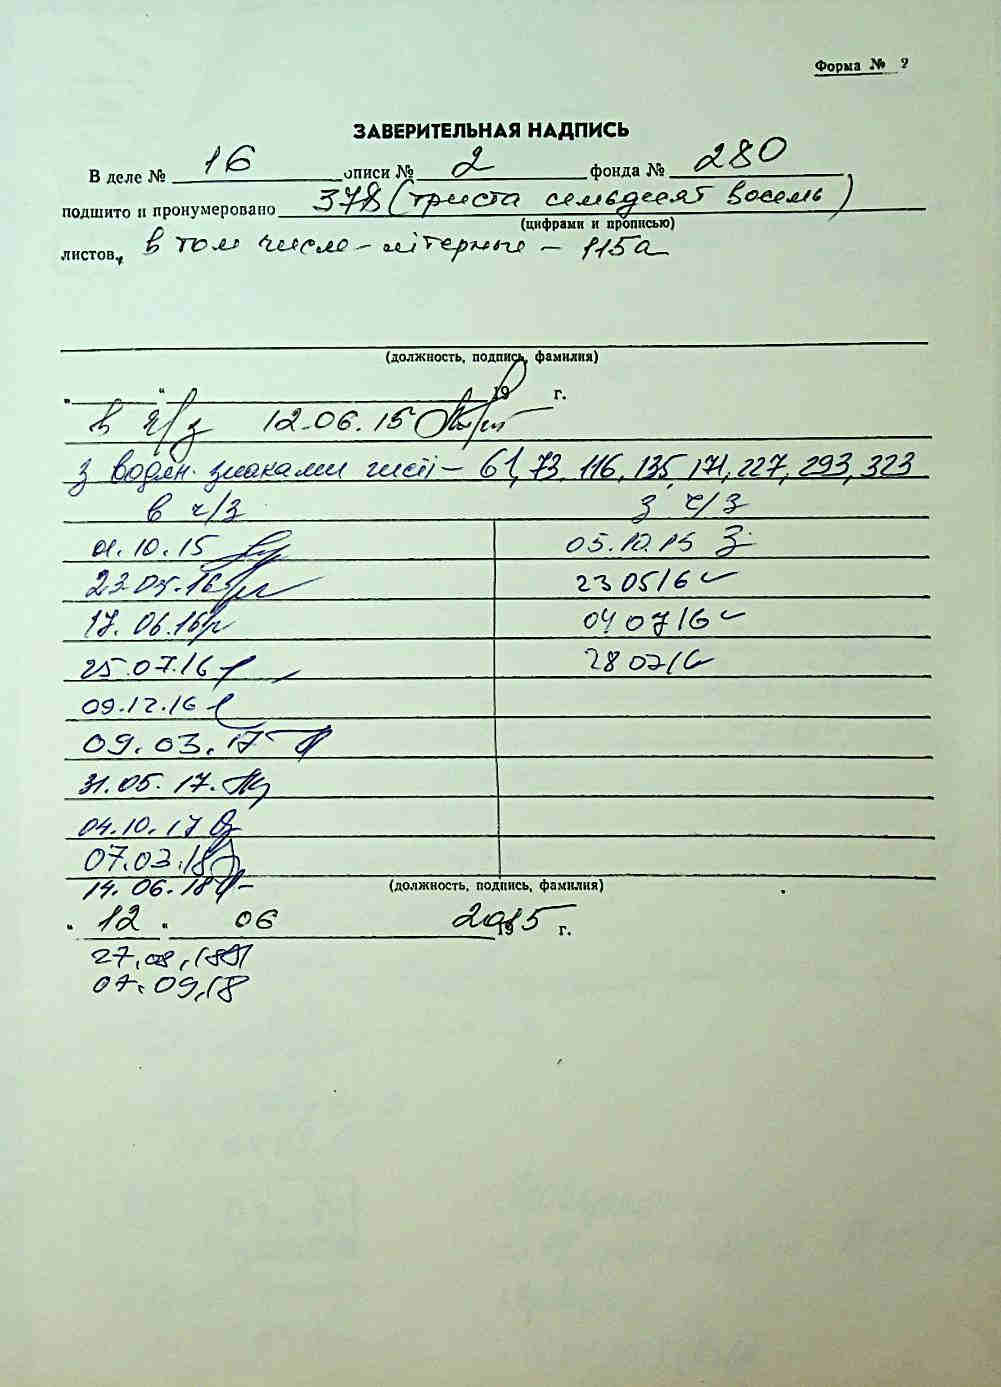 Форма № 2
ЗАВЕРИТЕЛЬНАЯ НАДПИСЬ
В деле № 16 описи № 2 фонда № 280
подшито и пронумеровано 378 (триста семьдесят восемь)
(цифрами и прописью)
листов, в том числе - літерные - 115а
(должность, подпись, фамилия)
" " 19 г.
в ч/з 12.06.15
з водян. знаками листі - 61, 73, 116, 135, 171, 227, 293, 323
в ч/з з ч/з
01.10.15 05.10.15
23.05.16 23 05 16
17.06.16 04 07 16
25.07.16 28 07 16
09.12.16
09.03.17
31.05.17.
04.10.17
07.03.18
14.06.18
(должность, подпись, фамилия)
" 12 " 06 2015 19 г.
27.08.18
07.09.18